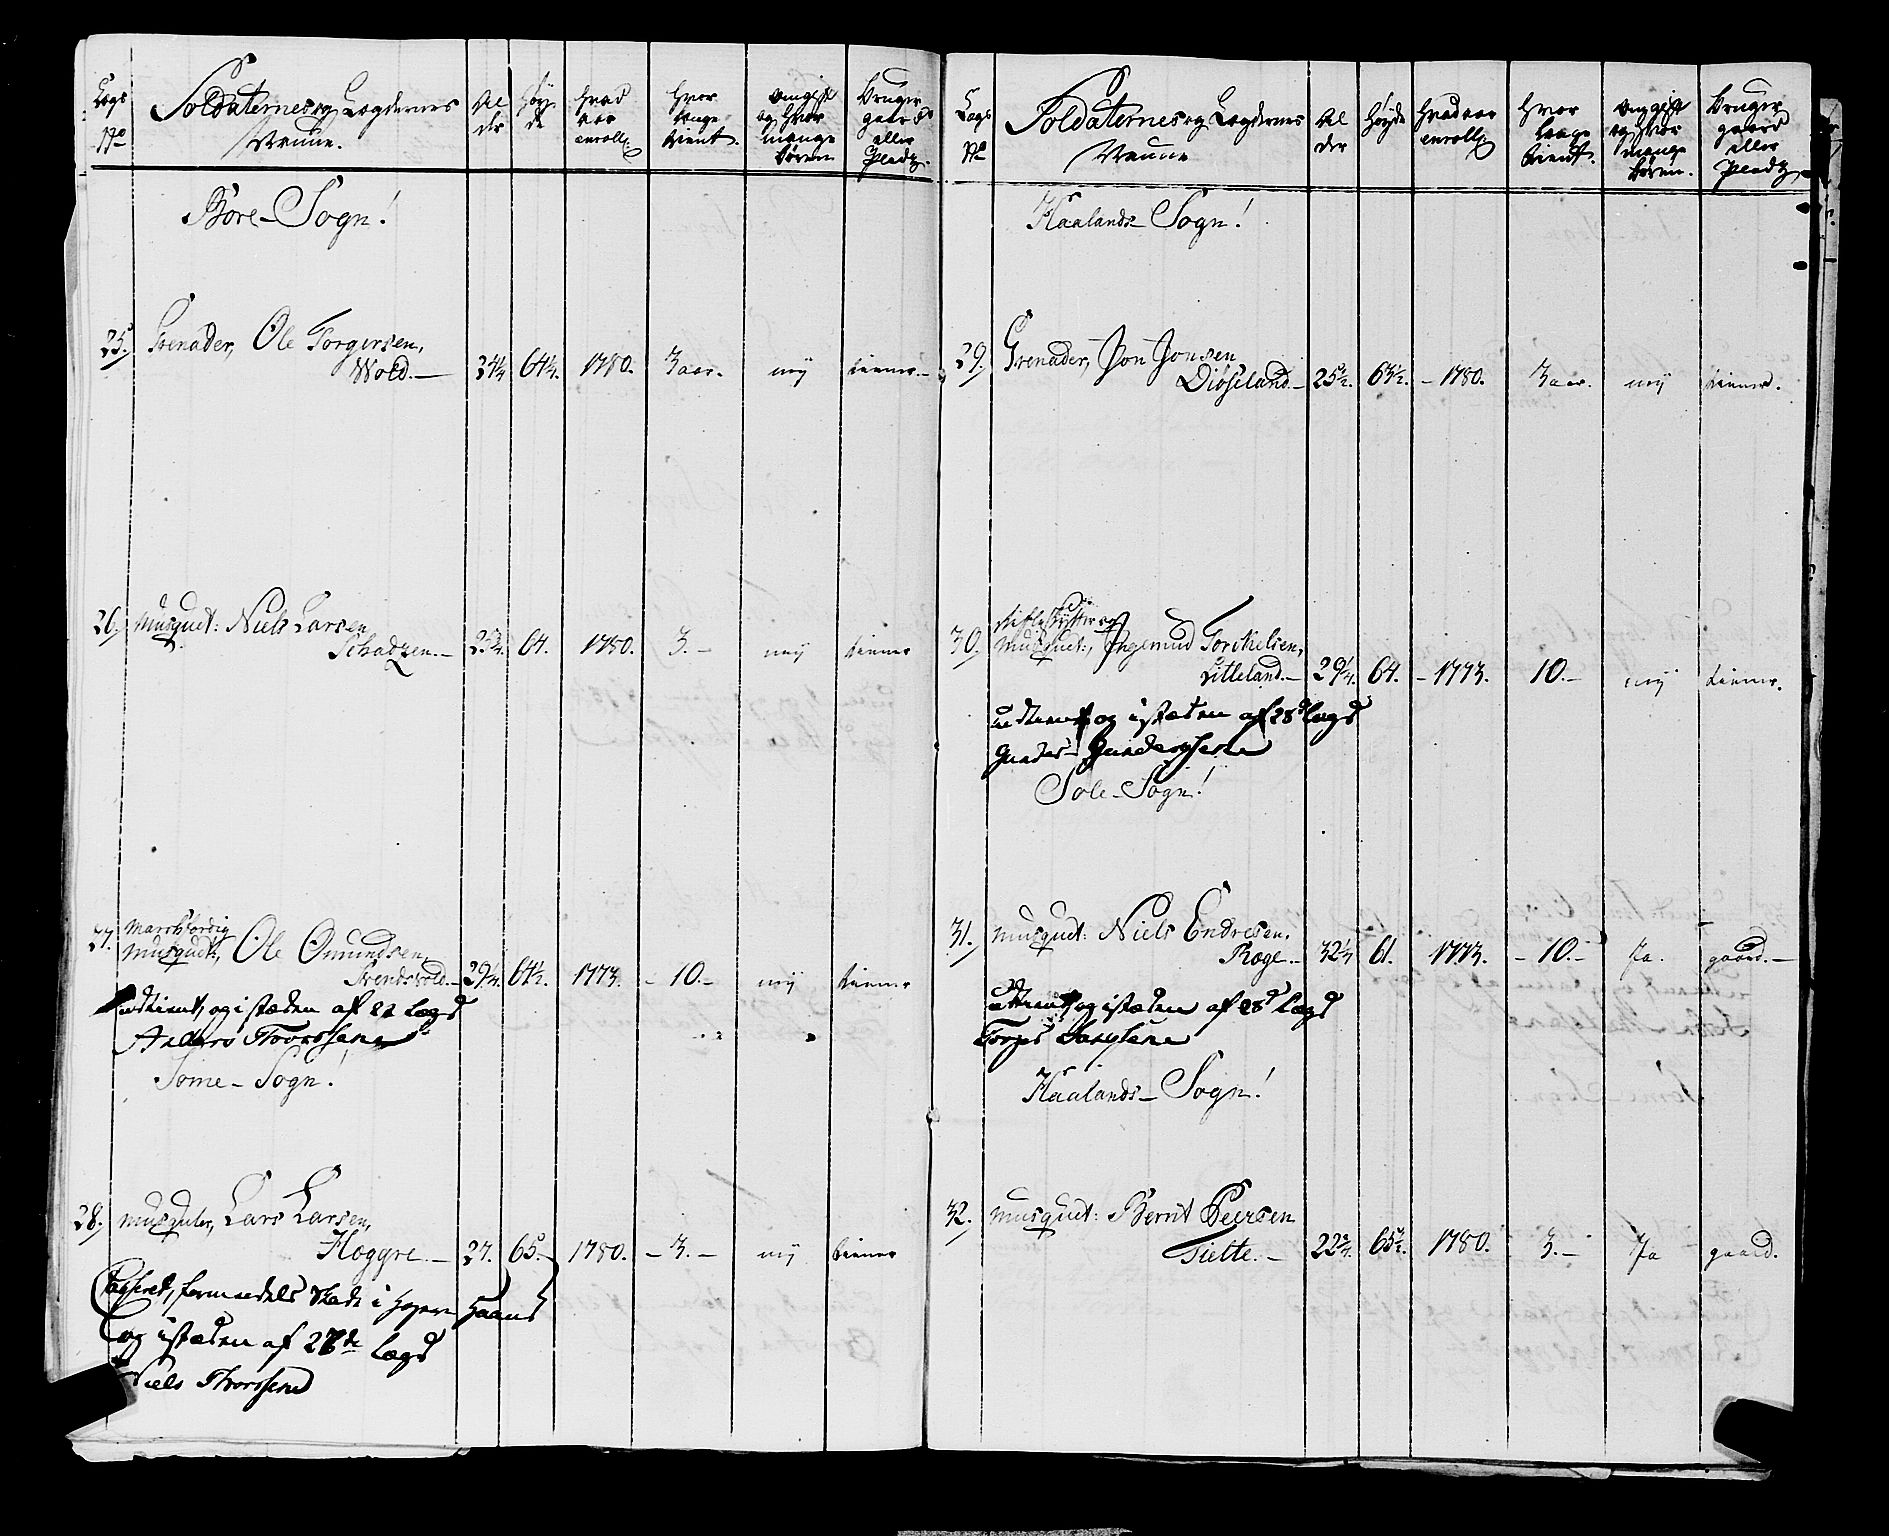 Lægs No
Soldaternes og Lægdernes Navne.
Alder
Høyde
hvad aar enroll:
hvor længe tient.
om gift og hvor mange børn
bruger gaard eller Pladz.
Bore - Sogn!
25. Grenader, Ole Torgersen,
Wold. — 24 1/4 64 1/4. 1780. 3 aar. ney tiener. —
26. Musquet: Niels Larsen
Schadzen. — 25 3/4. 64. 1780. 3. — ney tiener
27. Marskfærdig
Musquet:, Ole Omundsen,
Frendsvold. — 29 1/4. 64 1/2. 1773. — 10. — ney tiener
udtient, og istæden af 22 Lægd
Anders Thorssen
Some - Sogn!
28. Musqueter, Lars Larsen,
Hoggre. — 27. 65. 1780. — 3. — ney tiener
Casseret, formedelst Skade i høyre Haand
og istæden af 27de Lægd
Niels Thorssen
Lægs No
Soldaternes og Lægdernes Navne
Alder
Høyde
hvad aar enroll:
hvor længe tient.
om gift og hvor mange børn.
bruger gaard eller Pladz.
Haalands - Sogn!
29. Grenader, Jon Jonsen
Diøseland. — 25 1/2. 63 1/2. — 1780. 3 aar. ney tiener.
30. Rifleskytter og
Musquet:, Ingemund Torchelsen,
Litleland. — 29 1/4. 64. — 1773. 10. — ney tiener.
udtient og istæden af 28d Lægd
Gunder Gundersen
Sole - Sogn!
31. Musquet: Niels Endresen,
Roge. — 32 1/4 61. 1773. — 10. — Ja. gaard. —
udtient og istæden af 28d Lægd
Haalands - Sogn!
32. Musquet: Bernt Peersen
Tielte. — 22 3/4. 65 1/2. 1780. 3. — Ja gaard.